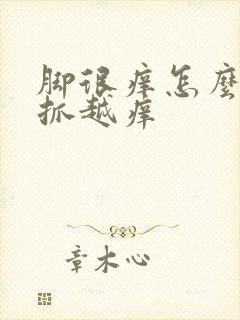 脚很痒怎麼
抓越痒
章木心